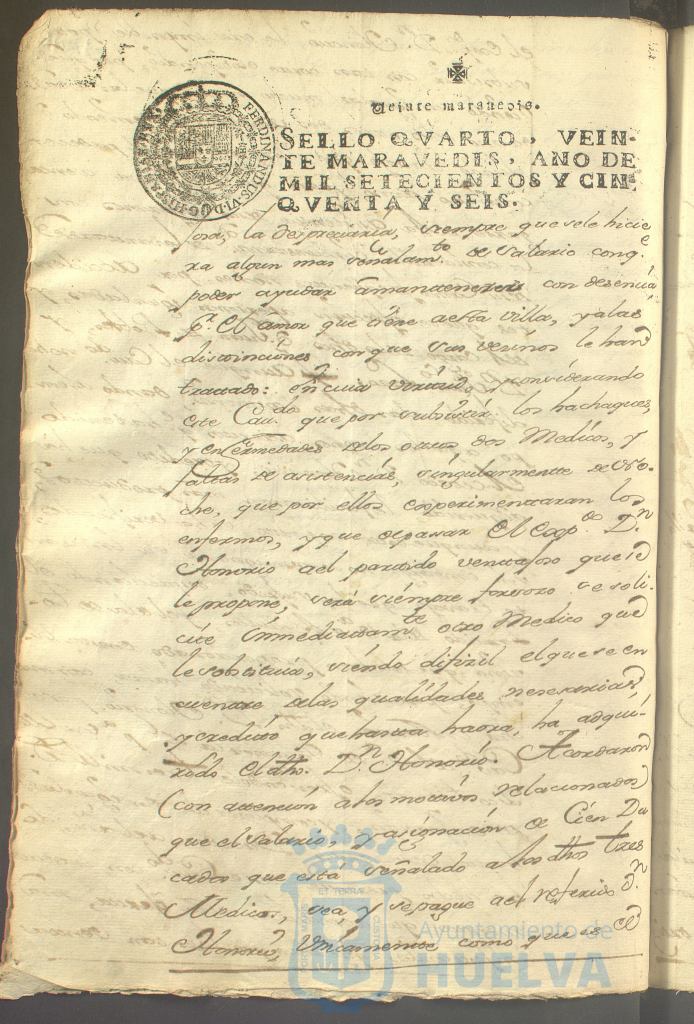 Veinte maravedis.
SELLO QVARTO, VEIN-
TE MARAVEDIS, AÑO DE
MIL SETECIENTOS Y CIN-
QVENTA Y SEIS.
FERDINANDUS VI D G
la despreciaria, siempre que se le hicie
ra algun mas señalam.to de salario con q.e
poder ayudar a mantenerse con desencia,
p.r el amor que tiene a esta villa, y a las
distinciones con que sus vesinos le han
tractado: en cuia virtud, y considerando
este Cau.do que por subsistir los hachaques,
y enfermedades de los otros dos Medicos, y
faltas de asistencias, singularmente de no-
che, que por ellos experimentaran los
enfermos, y que de pasar el exp.do D.n
Honorio a el partido ventajoso que se
le propone, será siempre forsoso se soli-
cite immediatam.te otro Medico que
le sobstituia, siendo dificil el que se en
cuentre de las qualidades nesesarias
y credito que hasta haora, ha adqui-
rido el dho. D.n Honorio. Acordaron
(con attencion a los motivos relacionados)
que el salario, y asignacion de Cien Du
cados que está señalado a los dhos tres
Medicos, sea, y se pague a el referido D.n
Honorio, unicamente como que es el
Ayuntamiento de
HUELVA